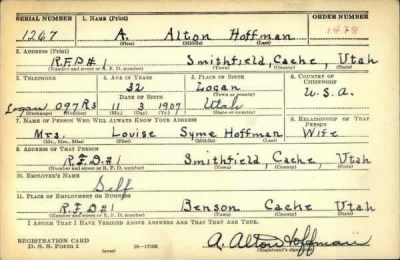 SERIAL NUMBER 1. NAME (Print) ORDER NUMBER
1267 A. Alton Hoffman 1428
(First) (Middle) (Last)
2. ADDRESS (Print)
R.F.D#1 Smithfield, Cache, Utah
(Number and street or R. F. D. number) (Town) (County) (State)
3. TELEPHONE 4. AGE IN YEARS 5. PLACE OF BIRTH 6. COUNTRY OF CITIZENSHIP
32 Logan
DATE OF BIRTH (Town or county)
Logan 097R3 11 3 1907 Utah U.S.A.
(Exchange) (Number) (Mo.) (Day) (Yr.) (State or country)
7. NAME OF PERSON WHO WILL ALWAYS KNOW YOUR ADDRESS 8. RELATIONSHIP OF THAT PERSON
Mrs. Louise Syme Hoffman Wife
(Mr., Mrs., Miss) (First) (Middle) (Last)
9. ADDRESS OF THAT PERSON
R.F.D.#1 Smithfield, Cache, Utah
(Number and street or R. F. D. number) (Town) (County) (State)
10. EMPLOYER'S NAME
Self
11. PLACE OF EMPLOYMENT OR BUSINESS
R.F.D#1 Benson Cache Utah
(Number and street or R. F. D. number) (Town) (County) (State)
I AFFIRM THAT I HAVE VERIFIED ABOVE ANSWERS AND THAT THEY ARE TRUE.
REGISTRATION CARD
D. S. S. Form 1 (over) A. Alton Hoffman
(Registrant's signature)